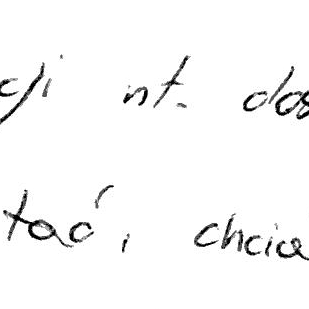 cji nt. dos
tać, chcia